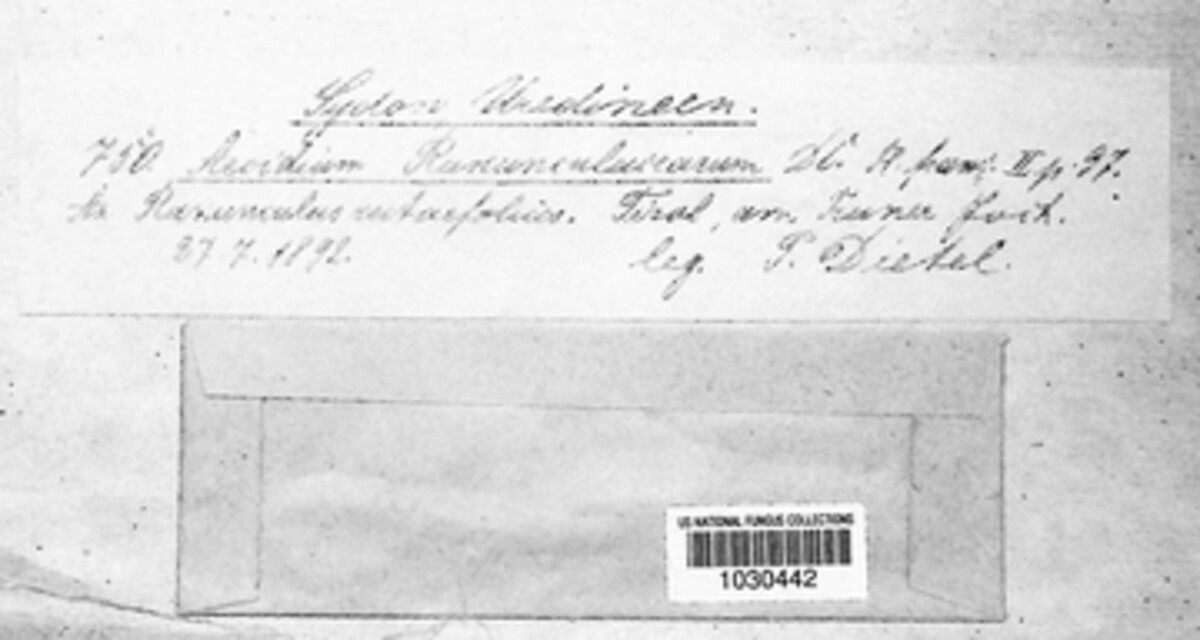 Sydow Uredineen.
750. Aecidium Ranunculacearum DC. fl. franç. II p. 97.
Ranunculus rutaefolius. Tirol, am Joch.
27. 7. 1892. leg. P. Dietel.
US NATIONAL FUNGUS COLLECTIONS
1030442